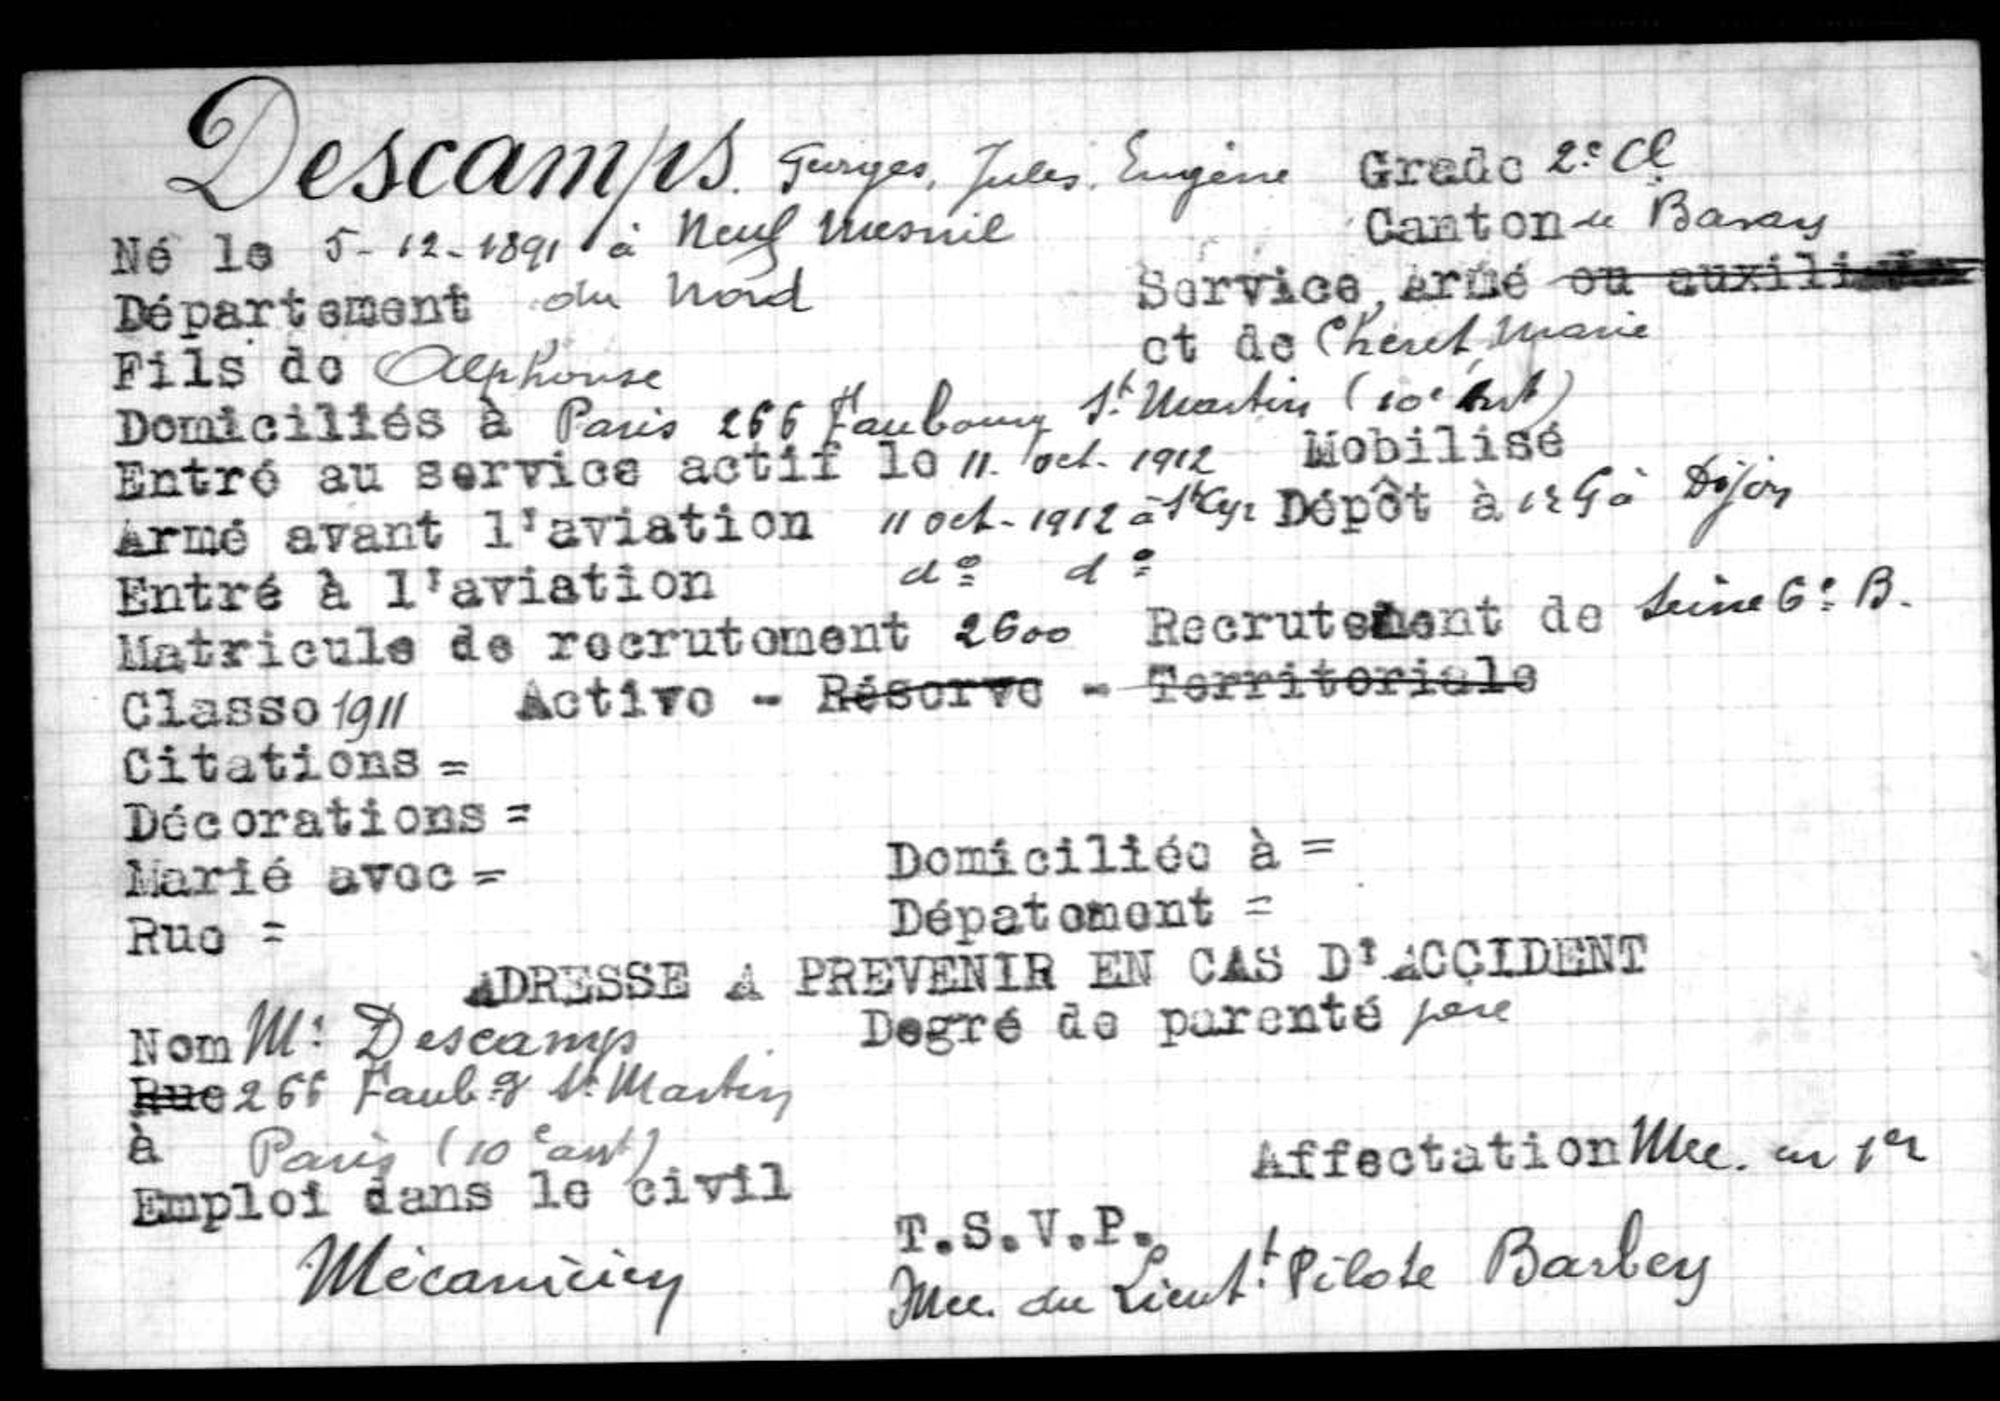 Descamps. Georges, Jules, Eugène Grade 2e Cl
Né le 5-12-1891 à Neuf Mesnil Canton de Bavay
Département du Nord Service armé ou auxiliaire
Fils de Alphonse et de Cheret, Marie
Domiciliés à Paris 266 Faubourg St. Martin (10e arrt)
Entré au service actif le 11. oct. 1912 Mobilisé
Armé avant l'aviation 11 oct. 1912 à St Cyr Dépôt à 1r G à Dijon
Entré à l'aviation do do
Matricule de recrutement 2600 Recrutement de Seine 6e B.
Classe 1911 Active - Réserve - Territoriale
Citations =
Décorations =
Marié avec = Domiciliée à =
Rue = Dépatement =
ADRESSE A PREVENIR EN CAS D'ACCIDENT
Nom Mr Descamps Degré de parenté père
Rue 266 Faubg St. Martin
à Paris (10e arrt) Affectation Mec. en 1er
Emploi dans le civil
T.S.V.P.
Mécanicien Mec. du Lieutt. Pilote Barbey